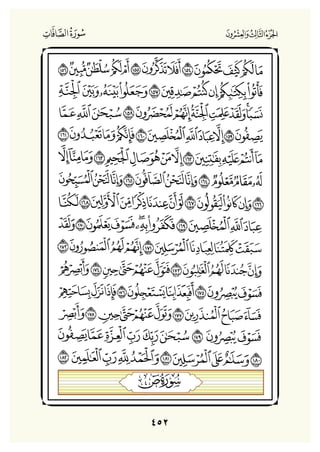 الجزء الثالث والعشرون سورة الصافات
مَا لَكُمْ كَيْفَ تَحْكُمُونَ ١٥٤ أَفَلَا تَذَكَّرُونَ ١٥٥ أَمْ لَكُمْ سُلْطَٰنٌ مُّبِينٌ ١٥٦
فَأْتُوا۟ بِكِتَٰبِكُمْ إِن كُنتُمْ صَٰدِقِينَ ١٥٧ وَجَعَلُوا۟ بَيْنَهُۥ وَبَيْنَ ٱلْجِنَّةِ
نَسَبًا ۚ وَلَقَدْ عَلِمَتِ ٱلْجِنَّةُ إِنَّهُمْ لَمُحْضَرُونَ ١٥٨ سُبْحَٰنَ ٱللَّهِ عَمَّا
يَصِفُونَ ١٥٩ إِلَّا عِبَادَ ٱللَّهِ ٱلْمُخْلَصِينَ ١٦٠ فَإِنَّكُمْ وَمَا تَعْبُدُونَ ١٦١
مَآ أَنتُمْ عَلَيْهِ بِفَٰتِنِينَ ١٦٢ إِلَّا مَنْ هُوَ صَالِ ٱلْجَحِيمِ ١٦٣ وَمَا مِنَّآ إِلَّا
لَهُۥ مَقَامٌ مَّعْلُومٌ ١٦٤ وَإِنَّا لَنَحْنُ ٱلصَّآفُّونَ ١٦٥ وَإِنَّا لَنَحْنُ ٱلْمُسَبِّحُونَ
١٦٦ وَإِن كَانُوا۟ لَيَقُولُونَ ١٦٧ لَوْ أَنَّ عِندَنَا ذِكْرًا مِّنَ ٱلْأَوَّلِينَ ١٦٨ لَكُنَّا
عِبَادَ ٱللَّهِ ٱلْمُخْلَصِينَ ١٦٩ فَكَفَرُوا۟ بِهِۦ ۖ فَسَوْفَ يَعْلَمُونَ ١٧٠ وَلَقَدْ
سَبَقَتْ كَلِمَتُنَا لِعِبَادِنَا ٱلْمُرْسَلِينَ ١٧١ إِنَّهُمْ لَهُمُ ٱلْمَنصُورُونَ ١٧٢
وَإِنَّ جُندَنَا لَهُمُ ٱلْغَٰلِبُونَ ١٧٣ فَتَوَلَّ عَنْهُمْ حَتَّىٰ حِينٍ ١٧٤ وَأَبْصِرْهُمْ
فَسَوْفَ يُبْصِرُونَ ١٧٥ أَفَبِعَذَابِنَا يَسْتَعْجِلُونَ ١٧٦ فَإِذَا نَزَلَ بِسَاحَتِهِمْ
فَسَآءَ صَبَاحُ ٱلْمُنذَرِينَ ١٧٧ وَتَوَلَّ عَنْهُمْ حَتَّىٰ حِينٍ ١٧٨ وَأَبْصِرْ
فَسَوْفَ يُبْصِرُونَ ١٧٩ سُبْحَٰنَ رَبِّكَ رَبِّ ٱلْعِزَّةِ عَمَّا يَصِفُونَ
١٨٠ وَسَلَٰمٌ عَلَى ٱلْمُرْسَلِينَ ١٨١ وَٱلْحَمْدُ لِلَّهِ رَبِّ ٱلْعَٰلَمِينَ ١٨٢
سُورَةُ صٓ
٤٥٢